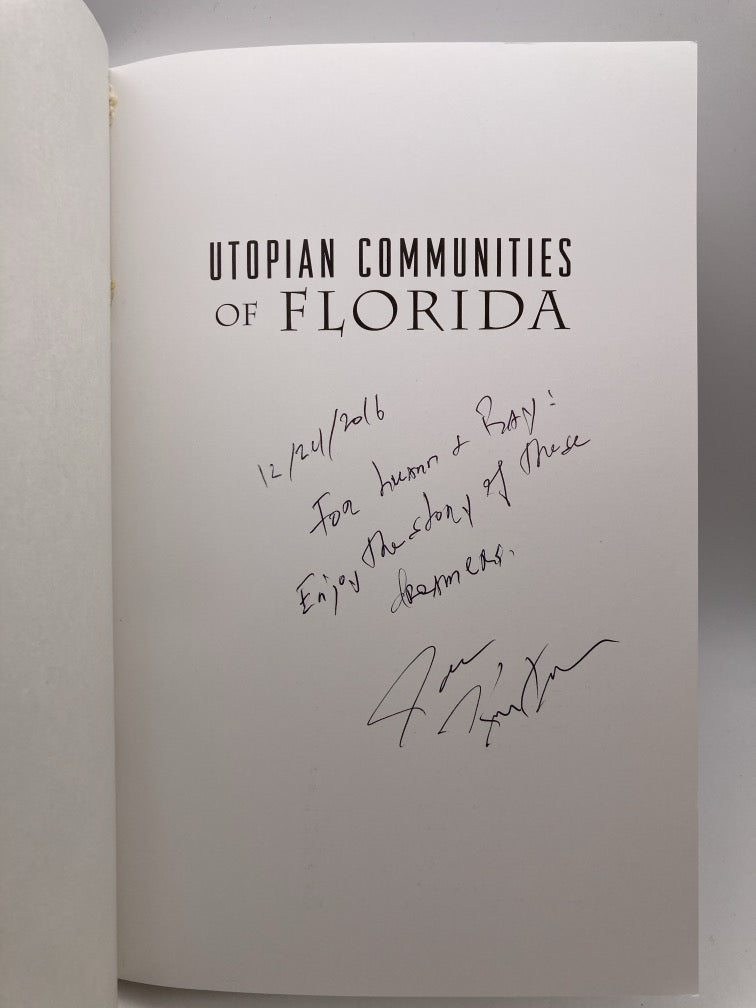 UTOPIAN COMMUNITIES
OF FLORIDA
12/24/2016
For Luann & RAY:
Enjoy the story of these
dreamers.